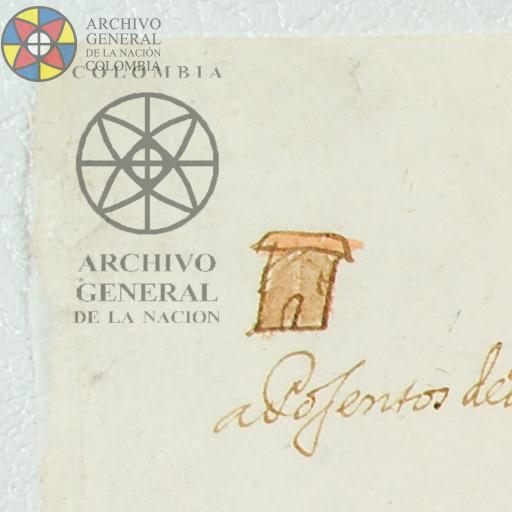 ARCHIVO
GENERAL
DE LA NACIÓN
COLOMBIA
COLOMBIA
ARCHIVO
GENERAL
DE LA NACION
aPosentos de